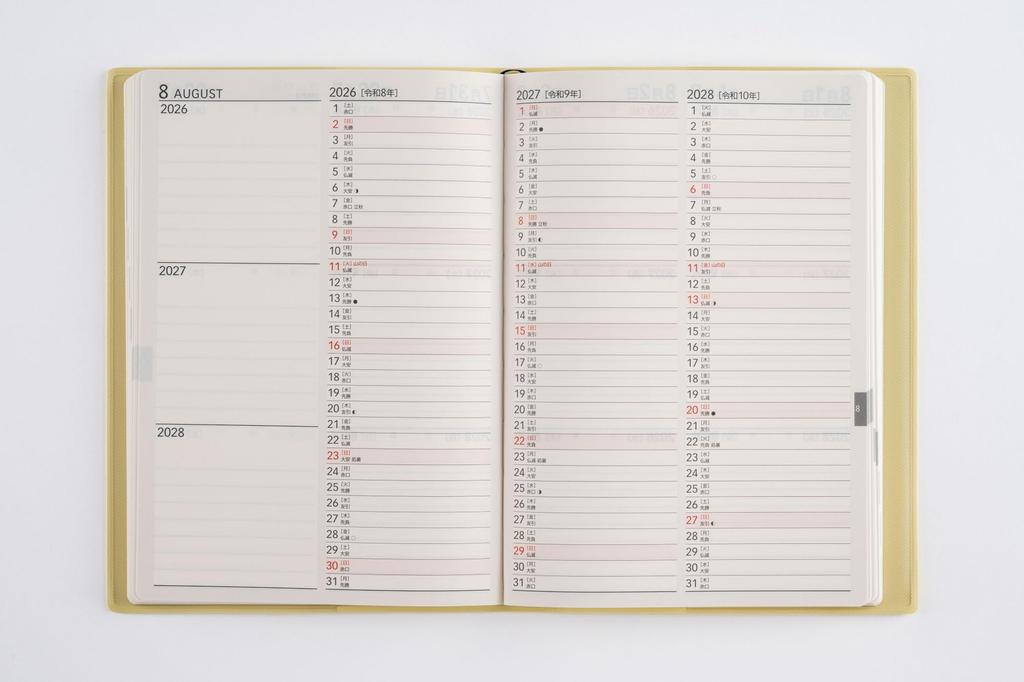 8 AUGUST
2026
2027
2028
2026 [令和8年]
1 [土] 赤口
2 [日] 先勝
3 [月] 友引
4 [火] 先負
5 [水] 仏滅
6 [木] 大安
7 [金] 赤口 立秋
8 [土] 先勝
9 [日] 友引
10 [月] 先負
11 [火] 山の日 仏滅
12 [水] 大安
13 [木] 先勝
14 [金] 友引
15 [土] 先負
16 [日] 仏滅
17 [月] 大安
18 [火] 赤口
19 [水] 先勝
20 [木] 友引
21 [金] 先負
22 [土] 仏滅
23 [日] 大安 処暑
24 [月] 赤口
25 [火] 先勝
26 [水] 友引
27 [木] 先負
28 [金] 仏滅
29 [土] 大安
30 [日] 赤口
31 [月] 先勝
2027 [令和9年]
1 [日] 仏滅
2 [月] 先勝
3 [火] 友引
4 [水] 先負
5 [木] 仏滅
6 [金] 大安
7 [土] 赤口
8 [日] 先勝 立秋
9 [月] 友引
10 [火] 先負
11 [水] 山の日 仏滅
12 [木] 大安
13 [金] 赤口
14 [土] 先勝
15 [日] 友引
16 [月] 先負
17 [火] 仏滅
18 [水] 大安
19 [木] 赤口
20 [金] 先勝
21 [土] 友引
22 [日] 先負
23 [月] 仏滅 処暑
24 [火] 大安
25 [水] 赤口
26 [木] 先勝
27 [金] 友引
28 [土] 先負
29 [日] 仏滅
30 [月] 大安
31 [火] 赤口
2028 [令和10年]
1 [火] 仏滅
2 [水] 大安
3 [木] 赤口
4 [金] 先勝
5 [土] 友引
6 [日] 先負
7 [月] 仏滅 立秋
8 [火] 大安
9 [水] 赤口
10 [木] 先勝
11 [金] 山の日 友引
12 [土] 先負
13 [日] 仏滅
14 [月] 大安
15 [火] 赤口
16 [水] 先勝
17 [木] 友引
18 [金] 先負
19 [土] 仏滅
20 [日] 先勝
21 [月] 友引
22 [火] 先負 処暑
23 [水] 仏滅
24 [木] 大安
25 [金] 赤口
26 [土] 先勝
27 [日] 友引
28 [月] 先負
29 [火] 仏滅
30 [水] 大安
31 [木] 赤口
8